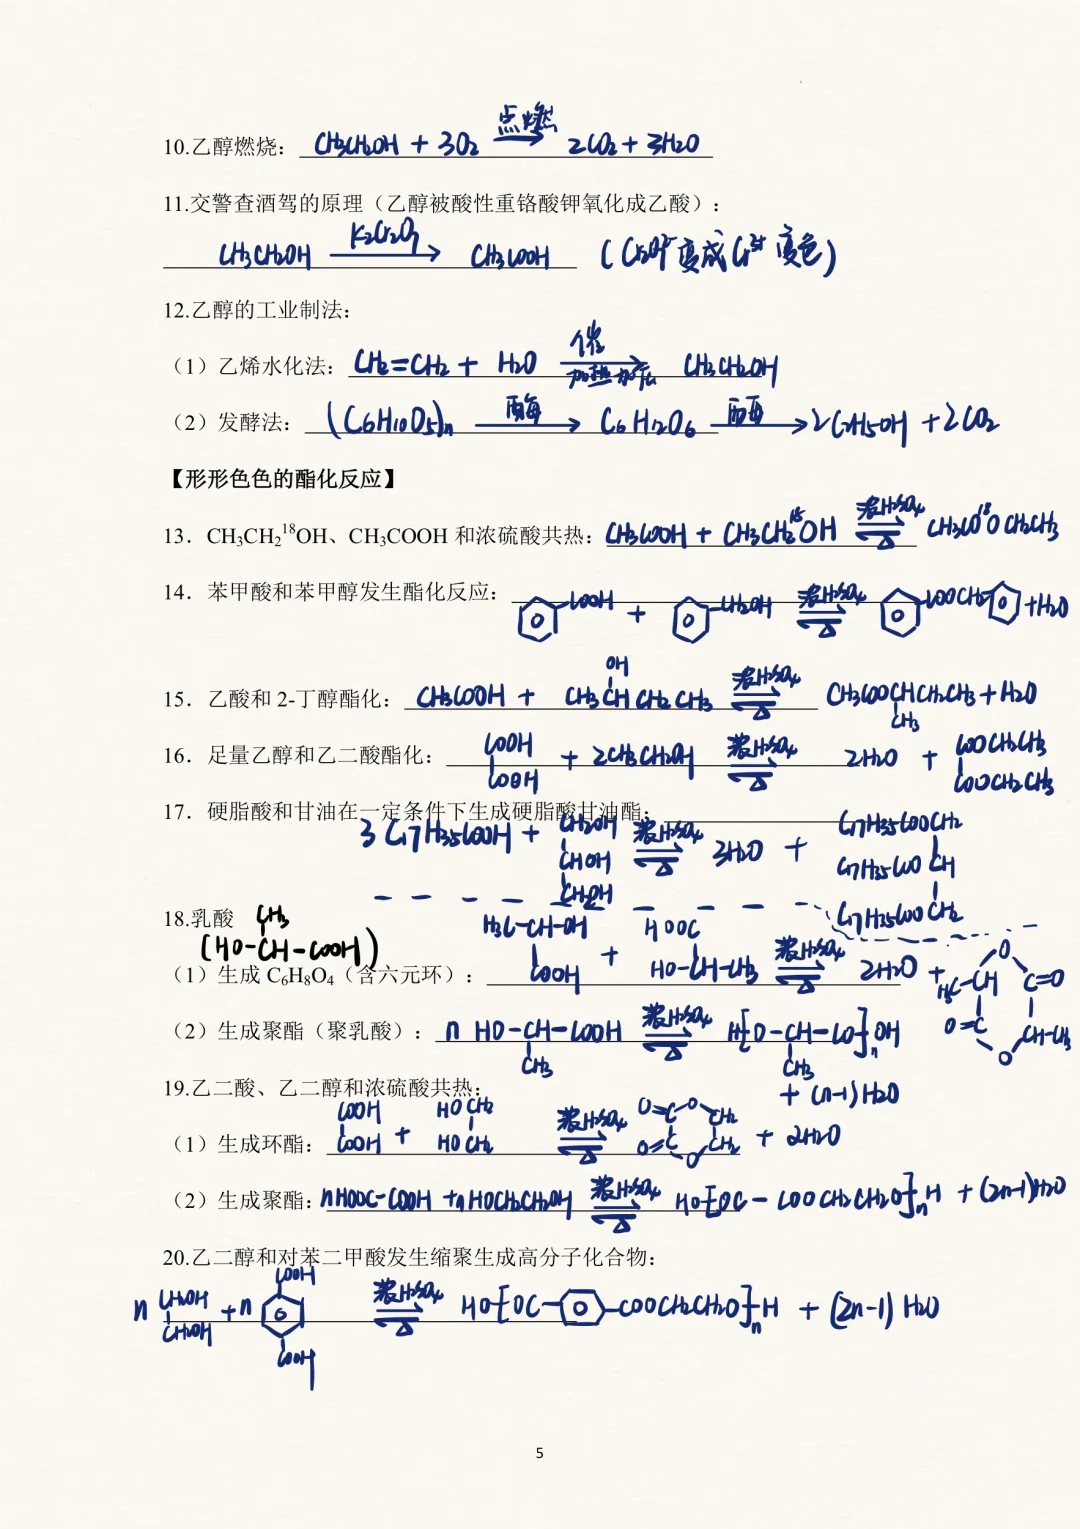 10.乙醇燃烧: CH3CH2OH + 3O2 点燃→ 2CO2 + 3H2O
11.交警查酒驾的原理（乙醇被酸性重铬酸钾氧化成乙酸）:
CH3CH2OH K2Cr2O7→ CH3COOH (Cr2O7²⁻变成Cr³⁺ 变色)
12.乙醇的工业制法:
（1）乙烯水化法: CH2=CH2 + H2O 催 加热加压→ CH3CH2OH
（2）发酵法: (C6H10O5)n 酶→ C6H12O6 酶→ 2C2H5OH + 2CO2
【形形色色的酯化反应】
13．CH3CH2¹⁸OH、CH3COOH 和浓硫酸共热: CH3COOH + CH3CH2¹⁸OH 浓H2SO4⇌△ CH3CO¹⁸OCH2CH3
14．苯甲酸和苯甲醇发生酯化反应: COOH + CH2OH 浓H2SO4⇌△ COOCH2 + H2O
15．乙酸和 2-丁醇酯化: CH3COOH + CH3CHCH2CH3 OH 浓H2SO4⇌△ CH3COOCHCH2CH3 + H2O
CH3
16．足量乙醇和乙二酸酯化: COOH COOH + 2CH3CH2OH 浓H2SO4⇌△ 2H2O + COOCH2CH3 COOCH2CH3
17．硬脂酸和甘油在一定条件下生成硬脂酸甘油酯:
3C17H35COOH + CH2OH CHOH CH2OH 浓H2SO4⇌△ 3H2O + C17H35COOCH2 C17H35COOCH C17H35COOCH2
18.乳酸 CH3
(HO-CH-COOH)
（1）生成 C6H8O4（含六元环）: H3C-CH-OH COOH + HOOC HO-CH-CH3 浓H2SO4⇌△ 2H2O + H3C-CH O C=O O=C O CH-CH3
（2）生成聚酯（聚乳酸）: n HO-CH-COOH 浓H2SO4⇌△ H[O-CH-CO]nOH
CH3 CH3
+ (n-1)H2O
19.乙二酸、乙二醇和浓硫酸共热:
（1）生成环酯: COOH COOH + HOCH2 HOCH2 浓H2SO4⇌△ O=C O CH2 O=C O CH2 + 2H2O
（2）生成聚酯: nHOOC-COOH + nHOCH2CH2OH 浓H2SO4⇌△ HO[OC-COOCH2CH2O]nH + (2n-1)H2O
20.乙二醇和对苯二甲酸发生缩聚生成高分子化合物:
n CH2OH CH2OH + n COOH COOH 浓H2SO4⇌△ HO[OC-COOCH2CH2O]nH + (2n-1) H2O
5